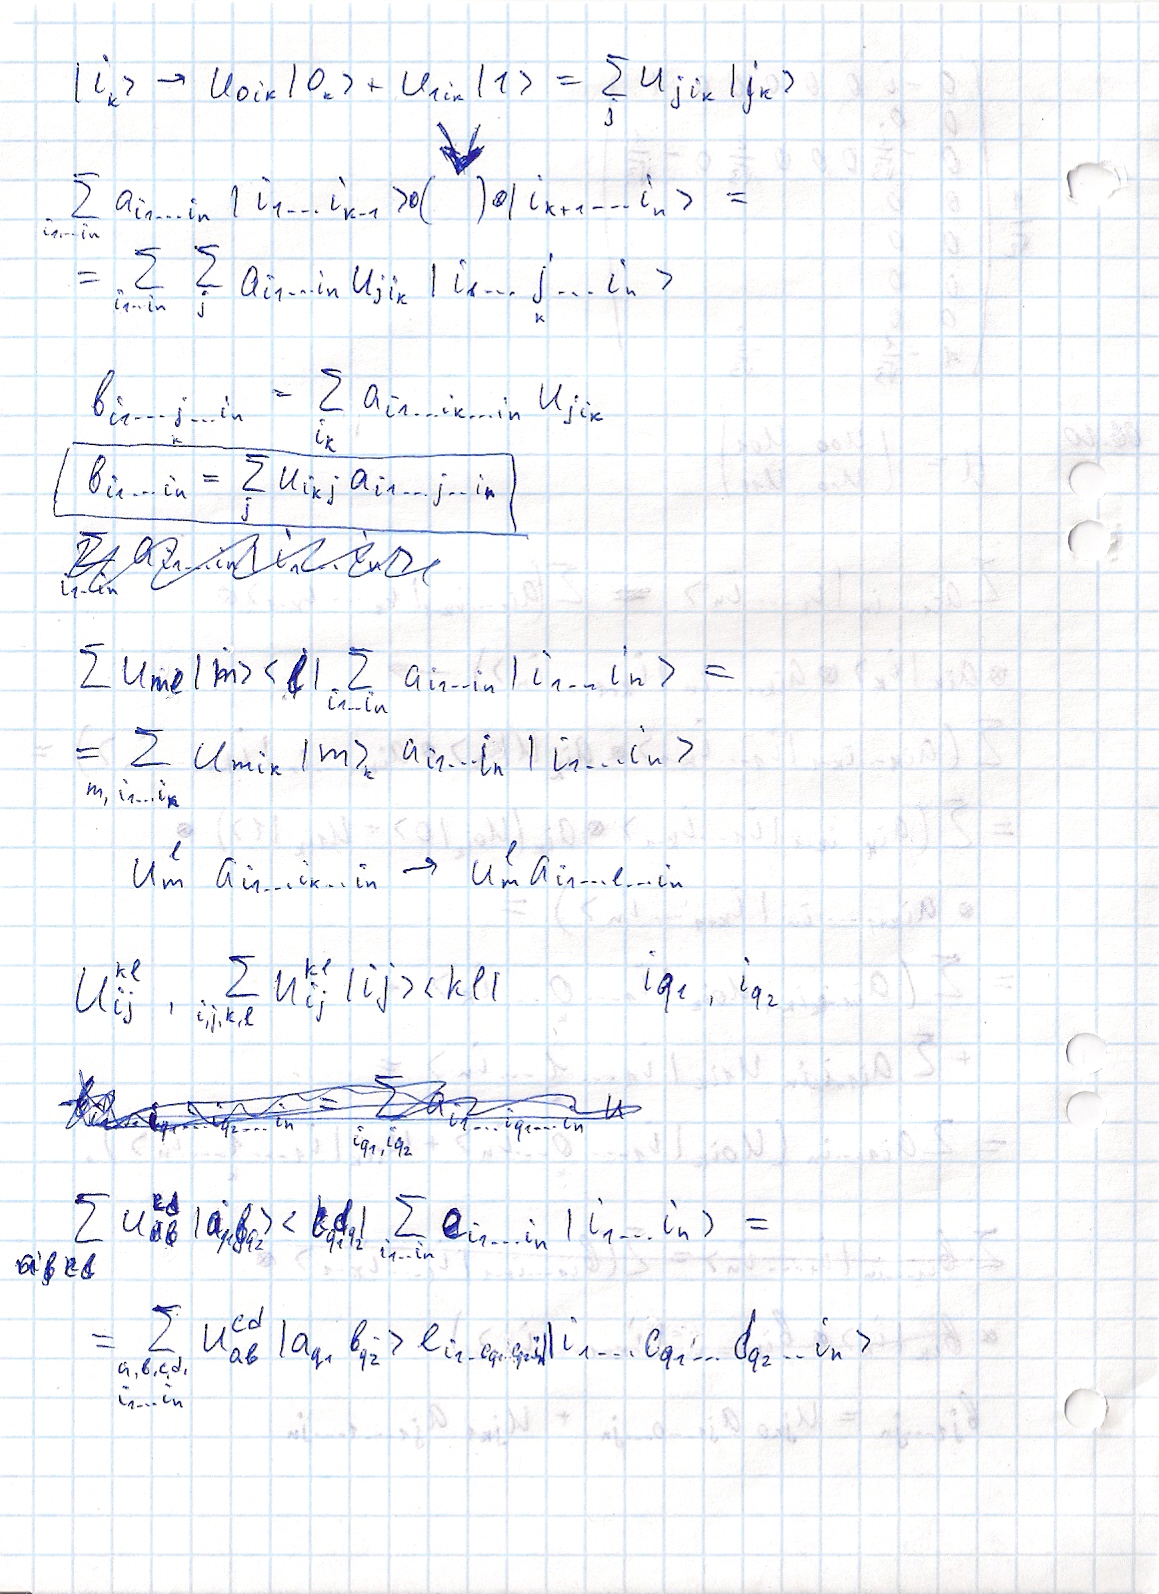 |i_k> → u_{0i_k}|0_k> + u_{1i_k}|1> = Σ_j u_{ji_k}|j_k>
Σ_{i_1...i_n} a_{i_1...i_n} |i_1...i_{k-1}>∘( )∘|i_{k+1}...i_n> =
= Σ_{i_1...i_n} Σ_j a_{i_1...i_n} u_{ji_k} |i_1... j_k ...i_n>
b_{i_1...j_k...i_n} = Σ_{i_k} a_{i_1...i_k...i_n} u_{ji_k}
b_{i_1...i_n} = Σ_j u_{i_k j} a_{i_1...j...i_n}
Σ u_{ml} |m><l| Σ_{i_1...i_n} a_{i_1...i_n} |i_1...i_n> =
= Σ_{m, i_1...i_n} u_{mi_k} |m>_k a_{i_1...i_n} |i_1...i_n>
u_m^l a_{i_1...i_k...i_n} → u_m^l a_{i_1...l...i_n}
U_{ij}^{kl} , Σ_{i,j,k,l} u_{ij}^{kl} |ij><kl| i_{q_1}, i_{q_2}
Σ_{ab cd} u_{ab}^{cd} |a_{q_1} b_{q_2}><c_{q_1} d_{q_2}| Σ_{i_1...i_n} e_{i_1...i_n} |i_1...i_n> =
= Σ_{a,b,c,d, i_1...i_n} u_{ab}^{cd} |a_{q_1} b_{q_2}> |i_1...c_{q_1}...d_{q_2}...i_n>